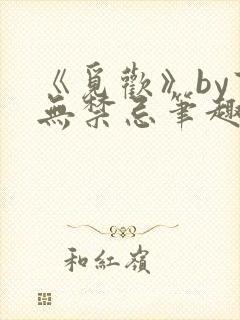 《覓歡》by
無禁忌筆趣
和紅嶺